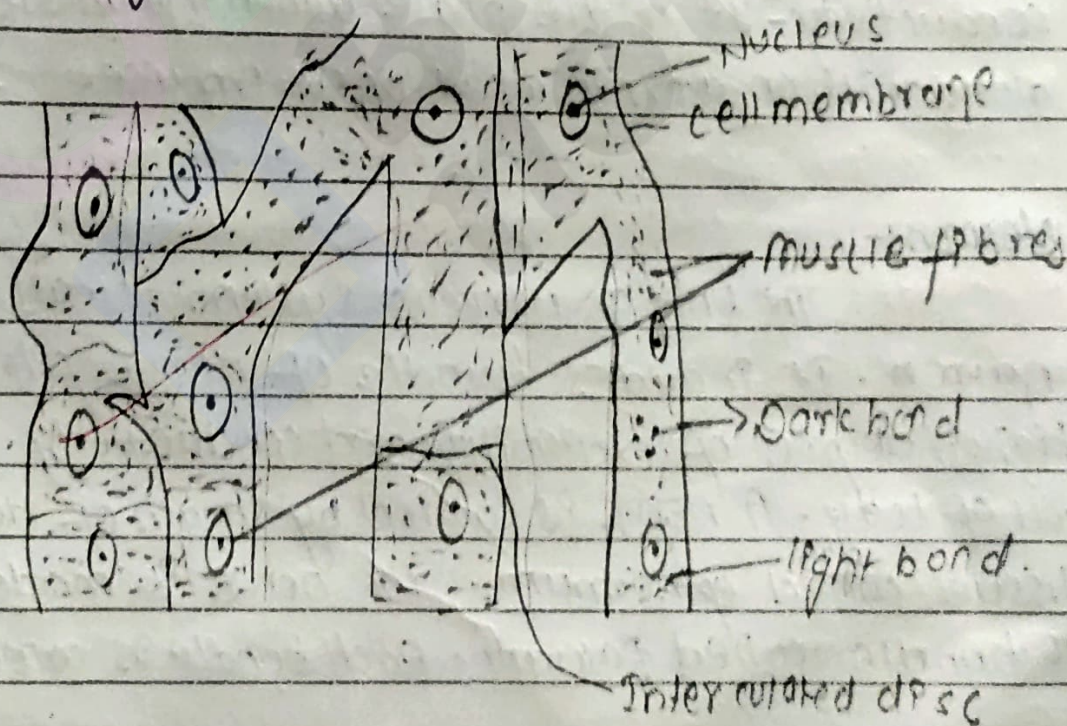 Nucleus
cell membrane
Muscle fibres
Dark band
light band
Inter culated disc